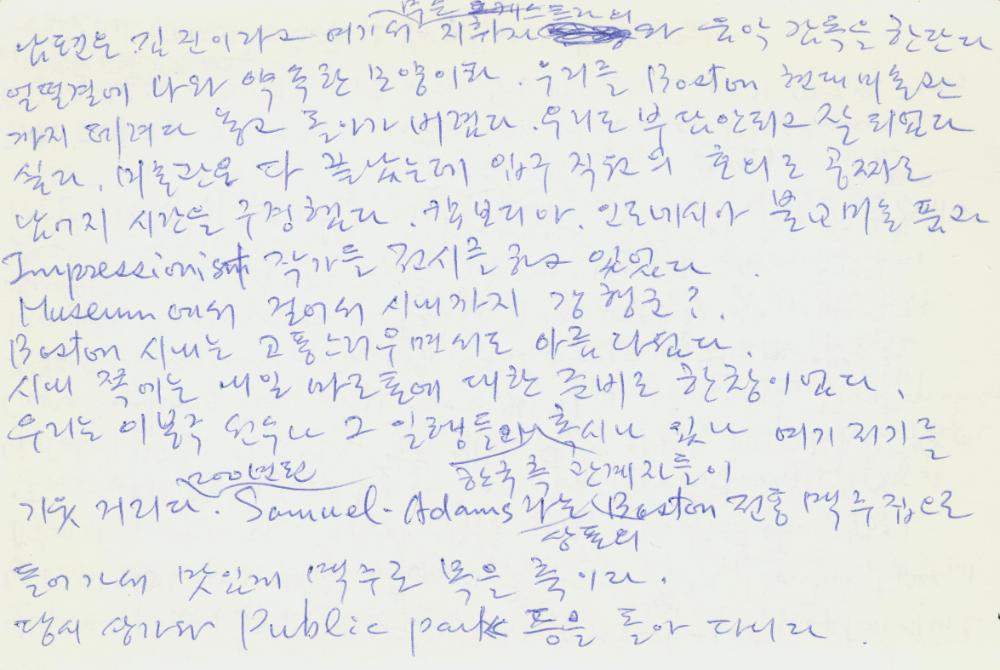 모든 오케스트라의
남편은 김진이라고 여기서 지휘자 와 음악 감독을 한단다
얼떨결에 나와 약속한 모양이다. 우리를 Boston 현대미술관
까지 데려다 놓고 돌아가 버렸다. 우리도 부담안되고 잘 되었다
싶다. 미술관은 다 끝났는데 입구 직원의 호의로 공짜로
남어지 시간을 구경했다. 캄보디아. 인도네시아 불교미술 품과
Impressionist 작가들 전시를 하고 있었다.
Museum에서 걸어서 시내까지 강행군?.
Boston 시내는 고풍스러우면서도 아름다웠다.
시내 쪽에는 내일 마라톤에 대한 준비로 한창이었다.
우리는 이봉주 선수나 그 일행들과 혹시나 있나 여기저기를
200년된 한국측 관계자들이
기웃 거리다. Samuel-Adams 라는 Boston 전통 맥주집으로
상표의
들어가서 맛있게 맥주로 목을 축이다.
당시 상가와 Public park 등을 돌아 다니다.